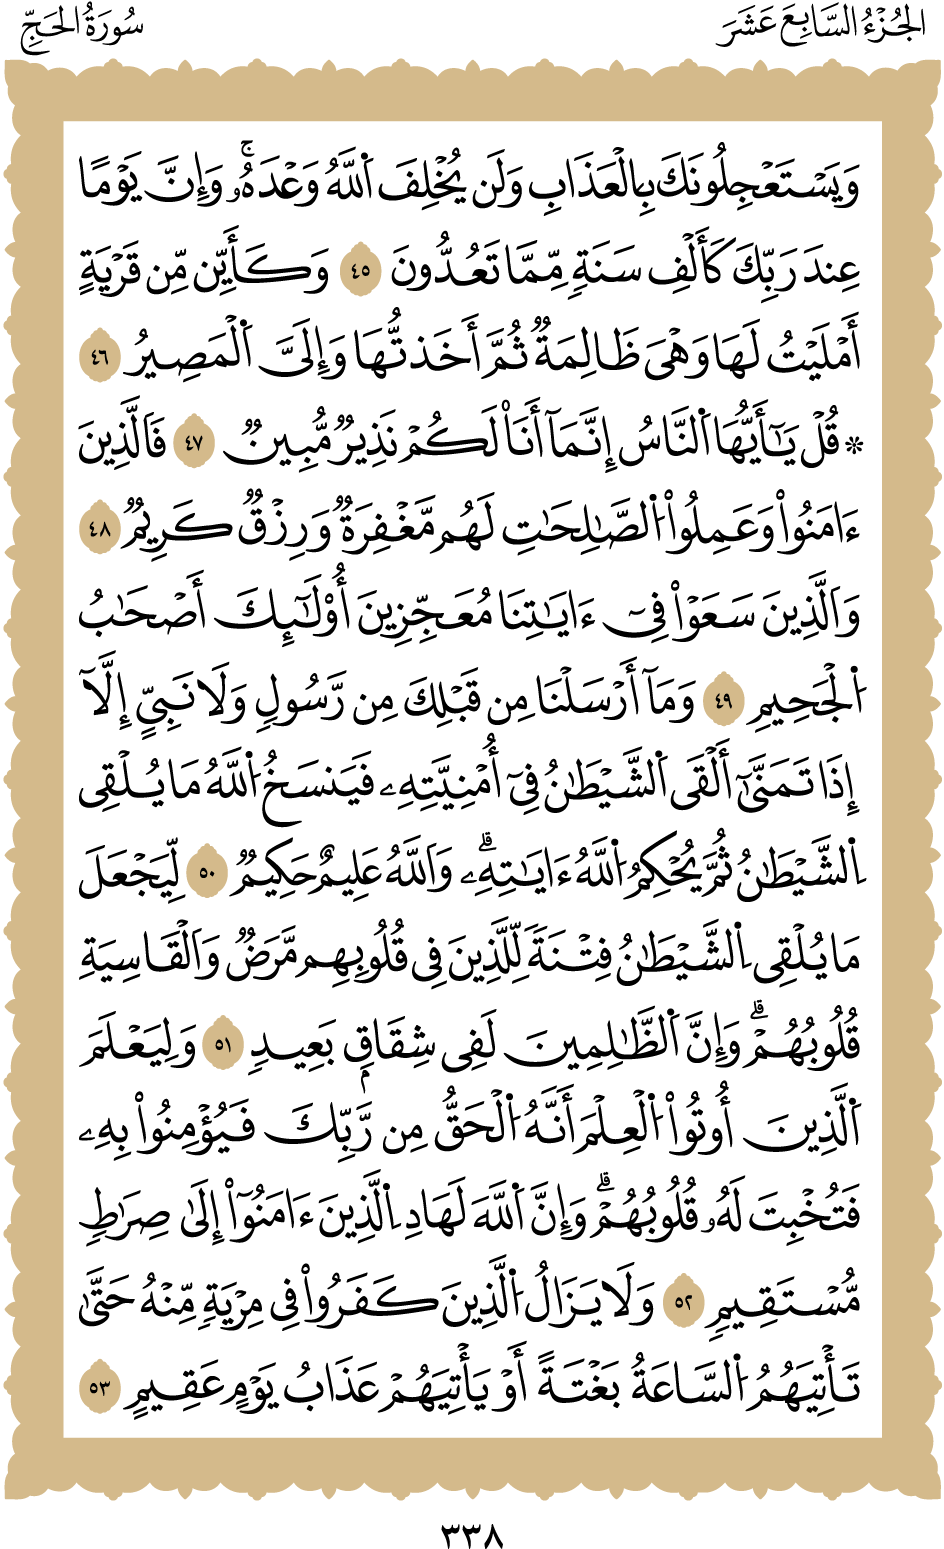 الجُزْءُ السَّابِعَ عَشَرَ
سُورَةُ الحَجِّ
وَيَسْتَعْجِلُونَكَ بِالْعَذَابِ وَلَن يُخْلِفَ اَ۬للَّهُ وَعْدَهُۥۚ وَإِنَّ يَوْمًا
عِندَ رَبِّكَ كَأَلْفِ سَنَةٍ مِّمَّا تَعُدُّونَ ٤٥ وَكَأَيِّن مِّن قَرْيَةٍ
أَمْلَيْتُ لَهَا وَهْيَ ظَالِمَةٌ ثُمَّ أَخَذتُّهَا وَإِلَيَّ اَ۬لْمَصِيرُ ٤٦
۞ قُلْ يَٰٓأَيُّهَا اَ۬لنَّاسُ إِنَّمَآ أَنَا۠ لَكُمْ نَذِيرٌ مُّبِينٌ ٤٧ فَالَّذِينَ
ءَامَنُواْ وَعَمِلُواْ اُ۬لصَّٰلِحَٰتِ لَهُم مَّغْفِرَةٌ وَرِزْقٌ كَرِيمٌ ٤٨
وَالَّذِينَ سَعَوْاْ فِيٓ ءَايَٰتِنَا مُعَجِّزِينَ أُوْلَٰٓئِكَ أَصْحَٰبُ
اُ۬لْجَحِيمِ ٤٩ وَمَآ أَرْسَلْنَا مِن قَبْلِكَ مِن رَّسُولٍ وَلَا نَبِيٍّ إِلَّآ
إِذَا تَمَنَّىٰٓ أَلْقَى اَ۬لشَّيْطَٰنُ فِيٓ أُمْنِيَّتِهِۦ فَيَنسَخُ اُ۬للَّهُ مَا يُلْقِي
اِ۬لشَّيْطَٰنُ ثُمَّ يُحْكِمُ اُ۬للَّهُ ءَايَٰتِهِۦۗ وَاللَّهُ عَلِيمٌ حَكِيمٌ ٥٠ لِّيَجْعَلَ
مَا يُلْقِي اِ۬لشَّيْطَٰنُ فِتْنَةً لِّلَّذِينَ فِي قُلُوبِهِم مَّرَضٌ وَالْقَاسِيَةِ
قُلُوبُهُمْۗ وَإِنَّ اَ۬لظَّٰلِمِينَ لَفِي شِقَاقٍۢ بَعِيدٍ ٥١ وَلِيَعْلَمَ
اَ۬لَّذِينَ أُوتُواْ اُ۬لْعِلْمَ أَنَّهُ اُ۬لْحَقُّ مِن رَّبِّكَ فَيُؤْمِنُواْ بِهِۦ
فَتُخْبِتَ لَهُۥ قُلُوبُهُمْۗ وَإِنَّ اَ۬للَّهَ لَهَادِ اِ۬لَّذِينَ ءَامَنُوٓاْ إِلَىٰ صِرَٰطٍ
مُّسْتَقِيمٍ ٥٢ وَلَا يَزَالُ اُ۬لَّذِينَ كَفَرُواْ فِي مِرْيَةٍ مِّنْهُ حَتَّىٰ
تَأْتِيَهُمُ اُ۬لسَّاعَةُ بَغْتَةً أَوْ يَأْتِيَهُمْ عَذَابُ يَوْمٍ عَقِيمٍ ٥٣
٣٣٨